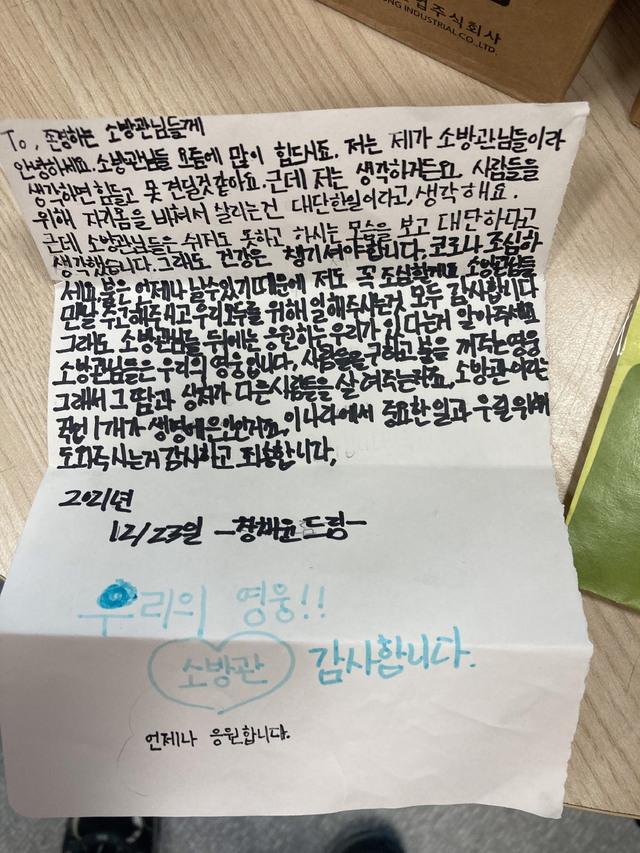 업주식회사
NG INDUSTRIAL CO.,LTD.
To, 존경하는 소방관님들께
안녕하세요. 소방관님들 요즘에 많이 힘드시죠. 저는 제가 소방관님들이라
생각하면 힘들고 못 견딜것 같아요. 근데 저는 생각하거든요. 사람들을
위해 자기몸을 바쳐서 살리는건 대단한일이라고, 생각해요.
근데 소방관님들은 쉬지도 못하고 하시는 모습을 보고 대단하다고
생각했습니다. 그래도 건강은 챙기셔야합니다. 코로나 조심하
세요. 불은 언제나 날수있기때문에 저도 꼭 조심할게요. 소방관님들
맨날 수고해주시고 우리모두를 위해 일해주시는것 모두 감사합니다
그래도 소방관님들 뒤에는 응원하는 우리가 있다는거 알아주세요
소방관님들은 우리의 영웅입니다, 사람들을 구하고 불을 꺼주는 영웅
그래서 그 땀과 상처가 다른사람들을 살려주는거죠, 소방관이라는
직업 1개가 생명에 은인인거죠, 이 나라에서 중요한 일과 우릴 위해
도와주시는거 감사하고 죄송합니다,
2021년
12/23일 ㅡ 드림ㅡ
우리의 영웅!!
소방관 감사합니다.
언제나 응원합니다.